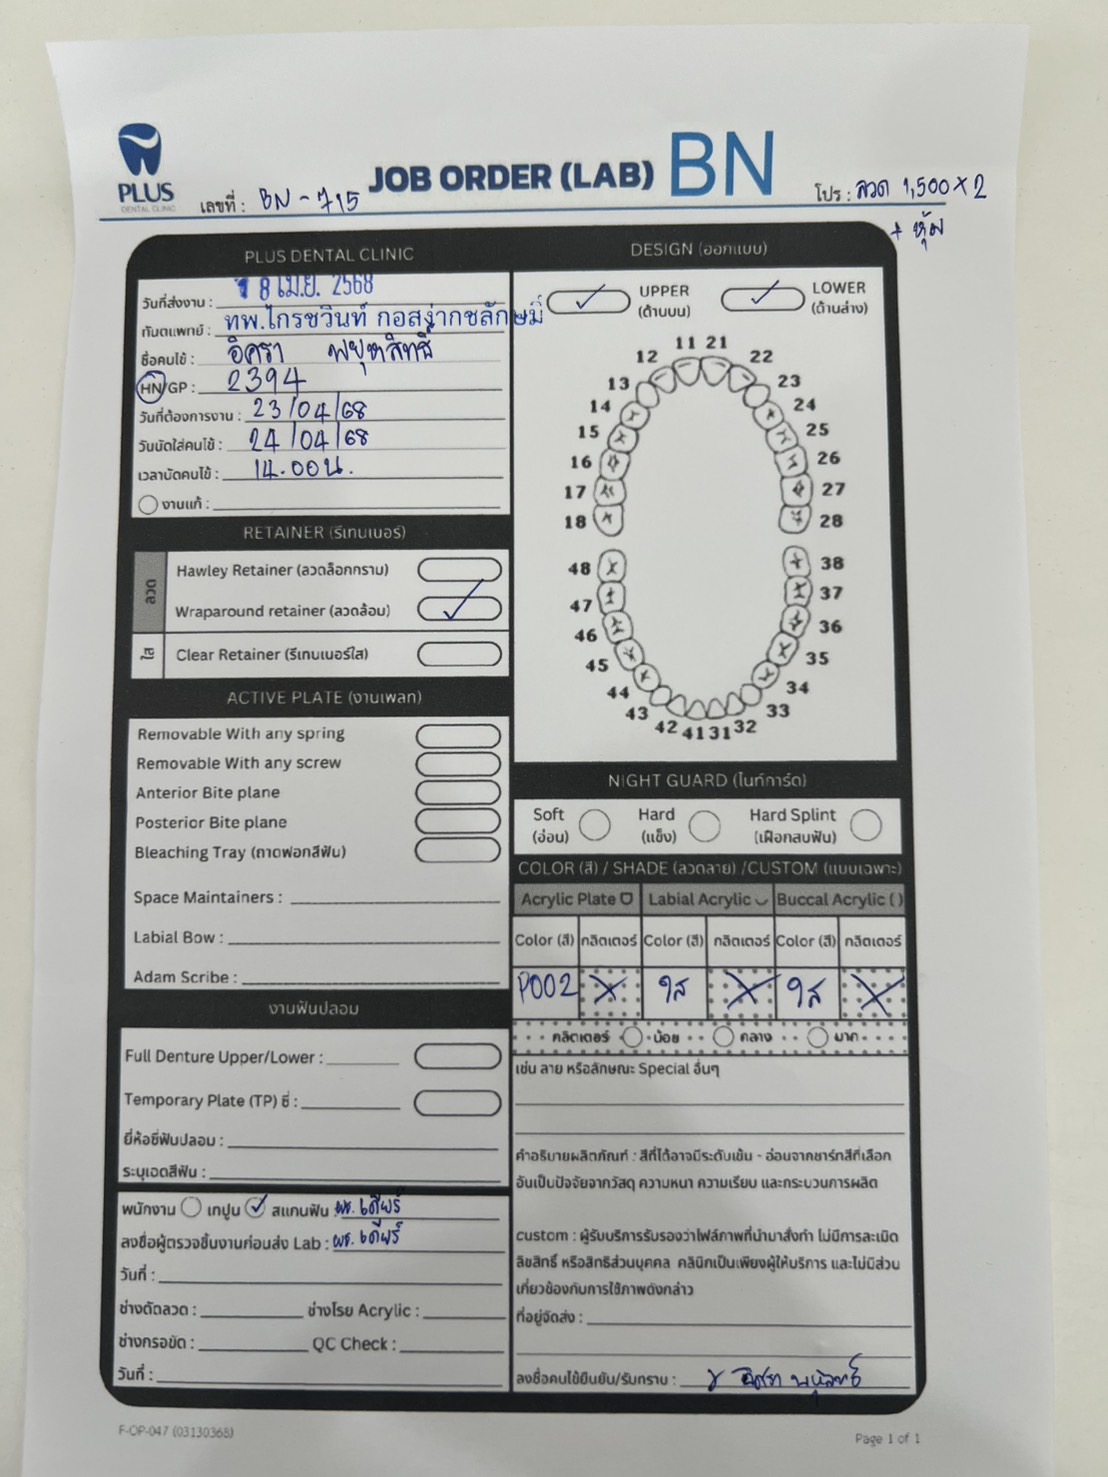 PLUS
DENTAL CLINIC
JOB ORDER (LAB) BN
เลขที่ : BN - 715
โปร : ลวด 1,500 x 2
+ หุ้ม
PLUS DENTAL CLINIC
วันที่ส่งงาน : 18 เม.ย. 2568
ทันตแพทย์ : ทพ.ไกรชวินท์ กอสง่ากชลักษมิ์
ชื่อคนไข้ : อิศรา พยุหสิทธิ์
HN/GP : 2394
วันที่ต้องการงาน : 23/04/68
วันนัดใส่คนไข้ : 24/04/68
เวลานัดคนไข้ : 14.00น.
งานแก้ :
RETAINER (รีเทนเนอร์)
ลวด
Hawley Retainer (ลวดล็อกกราม)
Wraparound retainer (ลวดล้อม)
ใส
Clear Retainer (รีเทนเนอร์ใส)
ACTIVE PLATE (งานเพลท)
Removable With any spring
Removable With any screw
Anterior Bite plane
Posterior Bite plane
Bleaching Tray (ถาดฟอกสีฟัน)
Space Maintainers :
Labial Bow :
Adam Scribe :
งานฟันปลอม
Full Denture Upper/Lower :
Temporary Plate (TP) ซี่ :
ยี่ห้อซี่ฟันปลอม :
ระบุเฉดสีฟัน :
พนักงาน เทปูน สแกนฟัน : ผช. เดียร์
ลงชื่อผู้ตรวจชิ้นงานก่อนส่ง Lab : ผช. เดียร์
วันที่ :
ช่างดัดลวด : ช่างโรย Acrylic :
ช่างกรอขัด : QC Check :
วันที่ :
DESIGN (ออกแบบ)
UPPER
(ด้านบน)
LOWER
(ด้านล่าง)
11 21
12 22
13 23
14 24
15 25
16 26
17 27
18 28
48 38
47 37
46 36
45 35
44 34
43 33
42 41 31 32
NIGHT GUARD (ไนท์การ์ด)
Soft
(อ่อน)
Hard
(แข็ง)
Hard Splint
(เฝือกสบฟัน)
COLOR (สี) / SHADE (ลวดลาย) /CUSTOM (แบบเฉพาะ)
Acrylic Plate Labial Acrylic Buccal Acrylic ( )
Color (สี) กลิตเตอร์ Color (สี) กลิตเตอร์ Color (สี) กลิตเตอร์
P002 X ใส X ใส X
กลิตเตอร์ น้อย กลาง มาก
เช่น ลาย หรือลักษณะ Special อื่นๆ
คำอธิบายผลิตภัณฑ์ : สีที่ได้อาจมีระดับเข้ม - อ่อนจากชาร์ทสีที่เลือก
อันเป็นปัจจัยจากวัสดุ ความหนา ความเรียบ และกระบวนการผลิต
custom : ผู้รับบริการรับรองว่าไฟล์ภาพที่นำมาสั่งทำ ไม่มีการละเมิด
ลิขสิทธิ์ หรือสิทธิส่วนบุคคล คลินิกเป็นเพียงผู้ให้บริการ และไม่มีส่วน
เกี่ยวข้องกับการใช้ภาพดังกล่าว
ที่อยู่จัดส่ง :
ลงชื่อคนไข้ยืนยัน/รับทราบ :
F-OP-047 (03130368)
Page 1 of 1